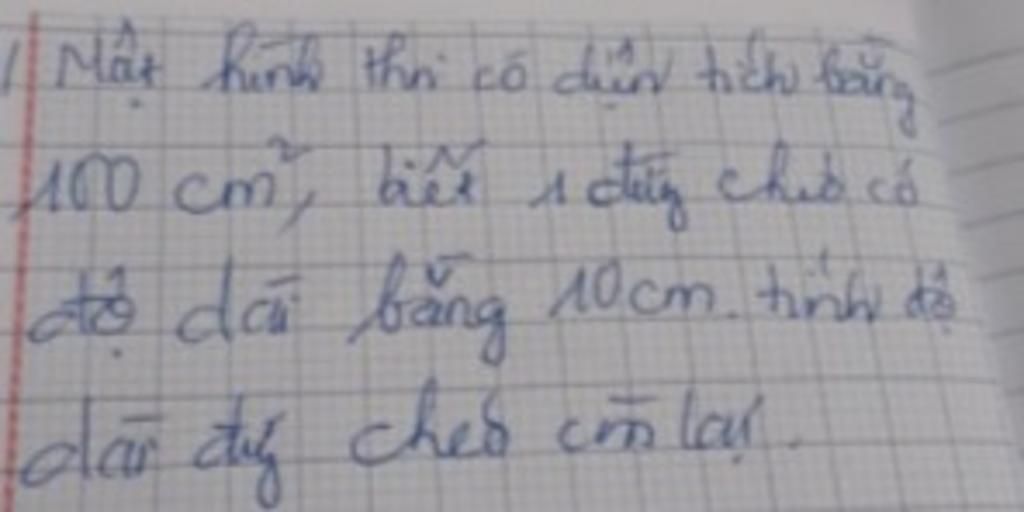 1 Một hình thoi có diện tích bằng
100 cm², biết 1 đường chéo có
độ dài bằng 10cm. tính độ
dài đg chéo còn lại.